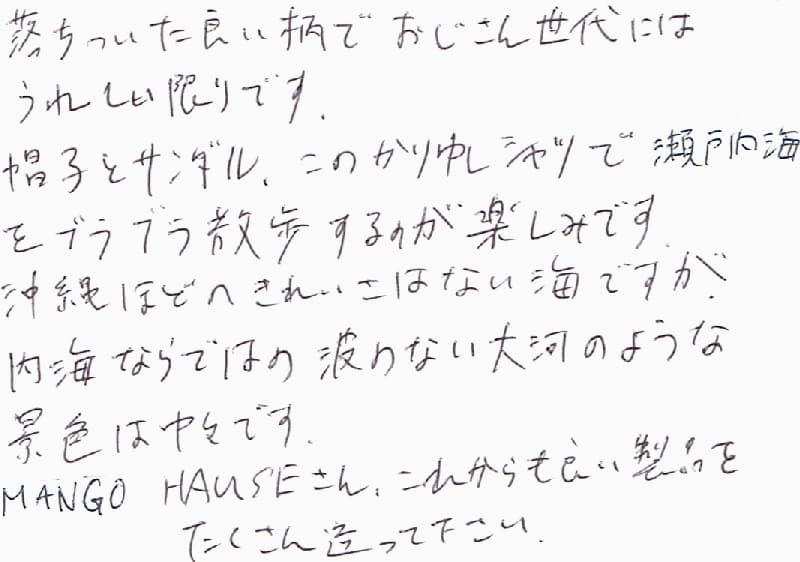 落ちついた良い柄で おじさん世代には
うれしい限りです.
帽子とサンダル、このかりゆしシャツで 瀬戸内海
をブラブラ散歩するのが楽しみです.
沖縄ほど きれいではない海ですが、
内海ならではの 波のない大河のような
景色は中々です.
MANGO HAUSEさん、これからも良い製品を
たくさん造って下さい.